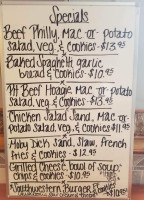 Specials
Beef Philly, Mac or potato
Salad, Veg. & cookies · $13.95
Baked Spaghetti, garlic
bread & cookies · $10.95
Beef Hoagie, Mac or potato
Salad, veg & cookies · $13.95
Chicken Salad Sand., Mac or
Potato Salad, veg. & cookies $11.95
Moby Dick Sand, Slaw, French
fries & cookies - $12.95
Grilled Cheese, bowl of Soup,
chips & cookies - $10.95
Southwestern Burger & cookies